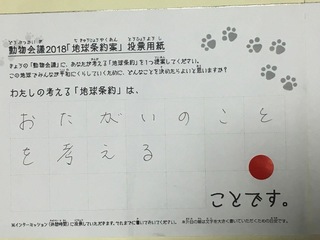 動物会議2018「地球条約案」投票用紙
きょうの「動物会議」に、あなたが考える「地球条約」を1つ提案してください。
この地球でみんなが平和にくらしていくために、どんなことを決めたらよいと思いますか?
わたしの考える「地球条約」は、
おたがいのこと
を考える
ことです。